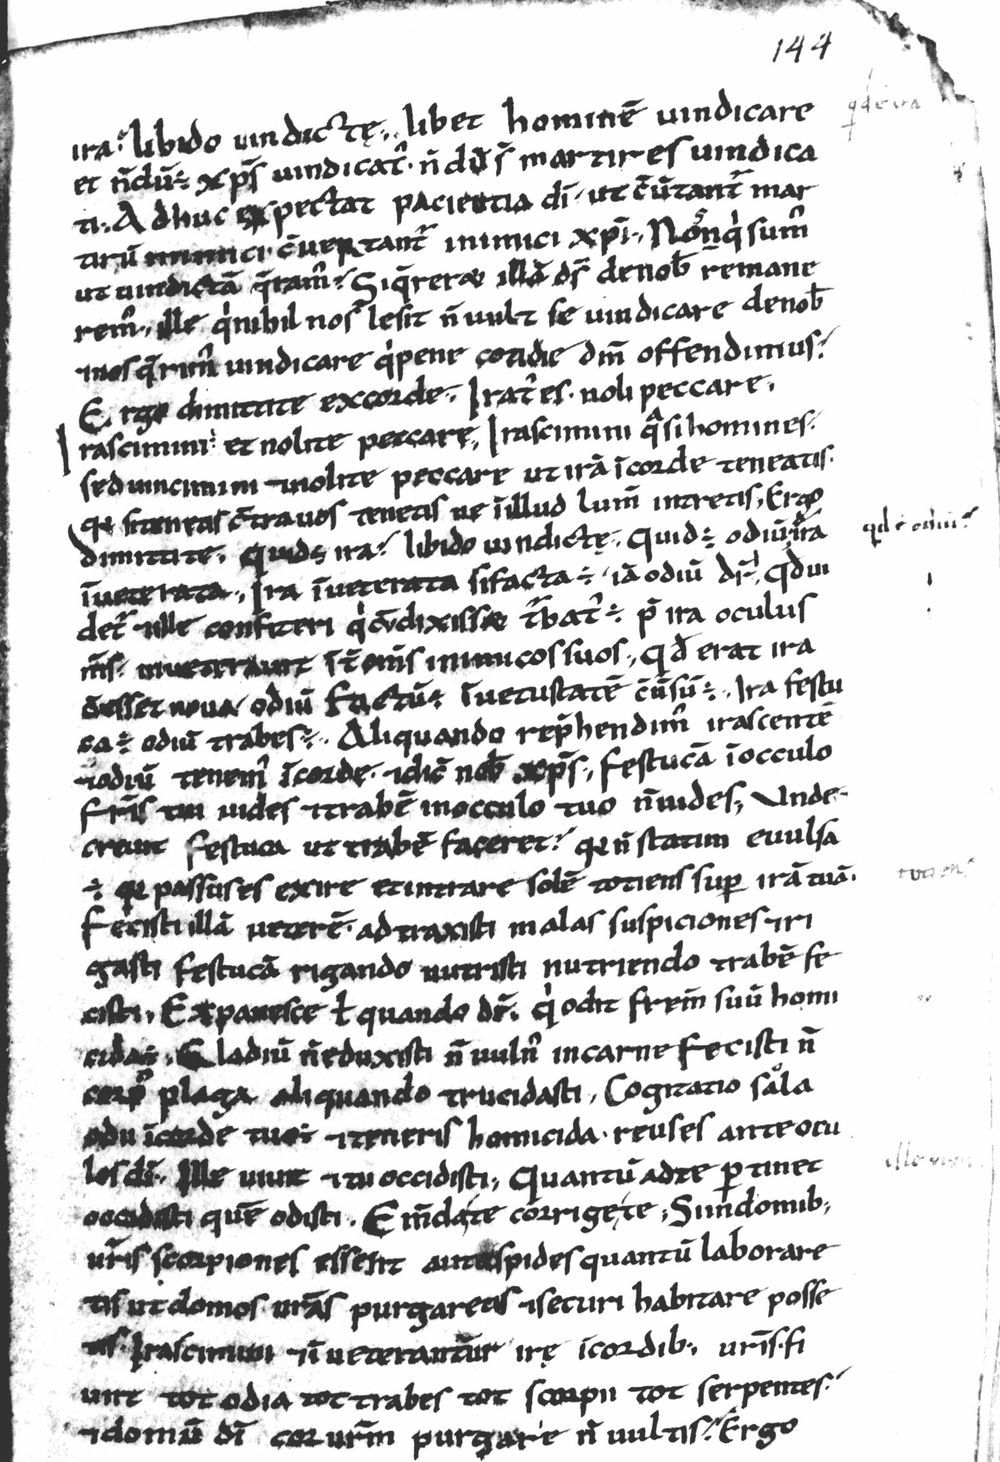 144
ira? libido uindictę. libet hominē uindicare
et n̄dū÷ xp̄s uindicat᷒. n̄dū s̄ martires uindica
ti. Adhuc expectat pacientia dī. ut c̄ūtant᷒ mar
tirū inimici c̄uertant᷒ inimici xp̄i. Nos q̇ sum᷒
ut uindictā q̄ram᷒? Si q̄reret illā ds̄ de nob̄ remane
rem᷒. ille q̇ nihil nos̄ lesit n̄ uult se uindicare de nob̄
⁊ nos q̄rim᷒ uindicare q̇ pene cotidie dm̄ offendimus?
Ergo dimittite ex corde. Irat᷒ es. noli peccare.
Irascimini. et nolite peccare. Irascimini q̄si homines.
sed uincimini ⁊ nolite peccare ut irā ī corde teneatis.
q̄ si teneas c̄tra uos tenetis ne ī illud lum̄ intretis. Ergo
dimittite. Quid÷ ira? libido uindictę. Quid÷ odiū? ira
īueterata. Ira īueterata si facta÷ iā odiū dr̄. qd̄ ui
det᷒ ⁊ ille confiteri q̇ cū dixisset t᷒bat᷒÷ p̄ ira oculus
m̄s. inueteraui īt̄ om̄s inimicos suos. qd̄ erat ira
cū esset noua odiū factū÷ ī uetustatē c̄ūsū÷. Ira festu
ca÷ odiū trabes÷. Aliquando rep̄hendim᷒ irascentē
⁊ odiū tenem᷒ ī corde. ⁊ dic̄ nob̄ xp̄s. festucā ī occulo
fr̄is tui uides ⁊ trabē in occulo tuo n̄ uides. Unde
creuit festuca ut trabē faceret? q̄ n̄ statim euulsa
÷ q̄ passus es exire et intrare solē totiens sup̱ irā tuā.
fecisti illā ueterē. adtraxisti malas suspiciones ⁊ iri
gasti festucā rigando nutristi nutriendo trabē fe
cisti. Expauesce ł quando dr̄. q̇ odit frem̄ suū homi
cida÷. Gladiū n̄ eduxisti n̄ uuln᷒ in carne fecisti n̄
corp᷒ plaga aliquando trucidasti. Cogitatio sola
odii ī corde tuo÷ ⁊ teneris homicida. reus es ante ocu
los dī. Ille uiuit ⁊ tu occidisti. Quantū ad te p̱tinet
occidisti quē odisti. Em̄date corrigete. Si in domib;
ur̄is scorpiones essent aut aspides quantū laborare
tis ut domos ur̄as purgaretis ⁊ securi habitare posse
tis. Irascimini ⁊ īueterantur irę ī cordib; ur̄is. fi
unt tot odia tot trabes tot scorpii tot serpentes?
⁊ domū dī cor ur̄m purgare n̄ uultis? Ergo